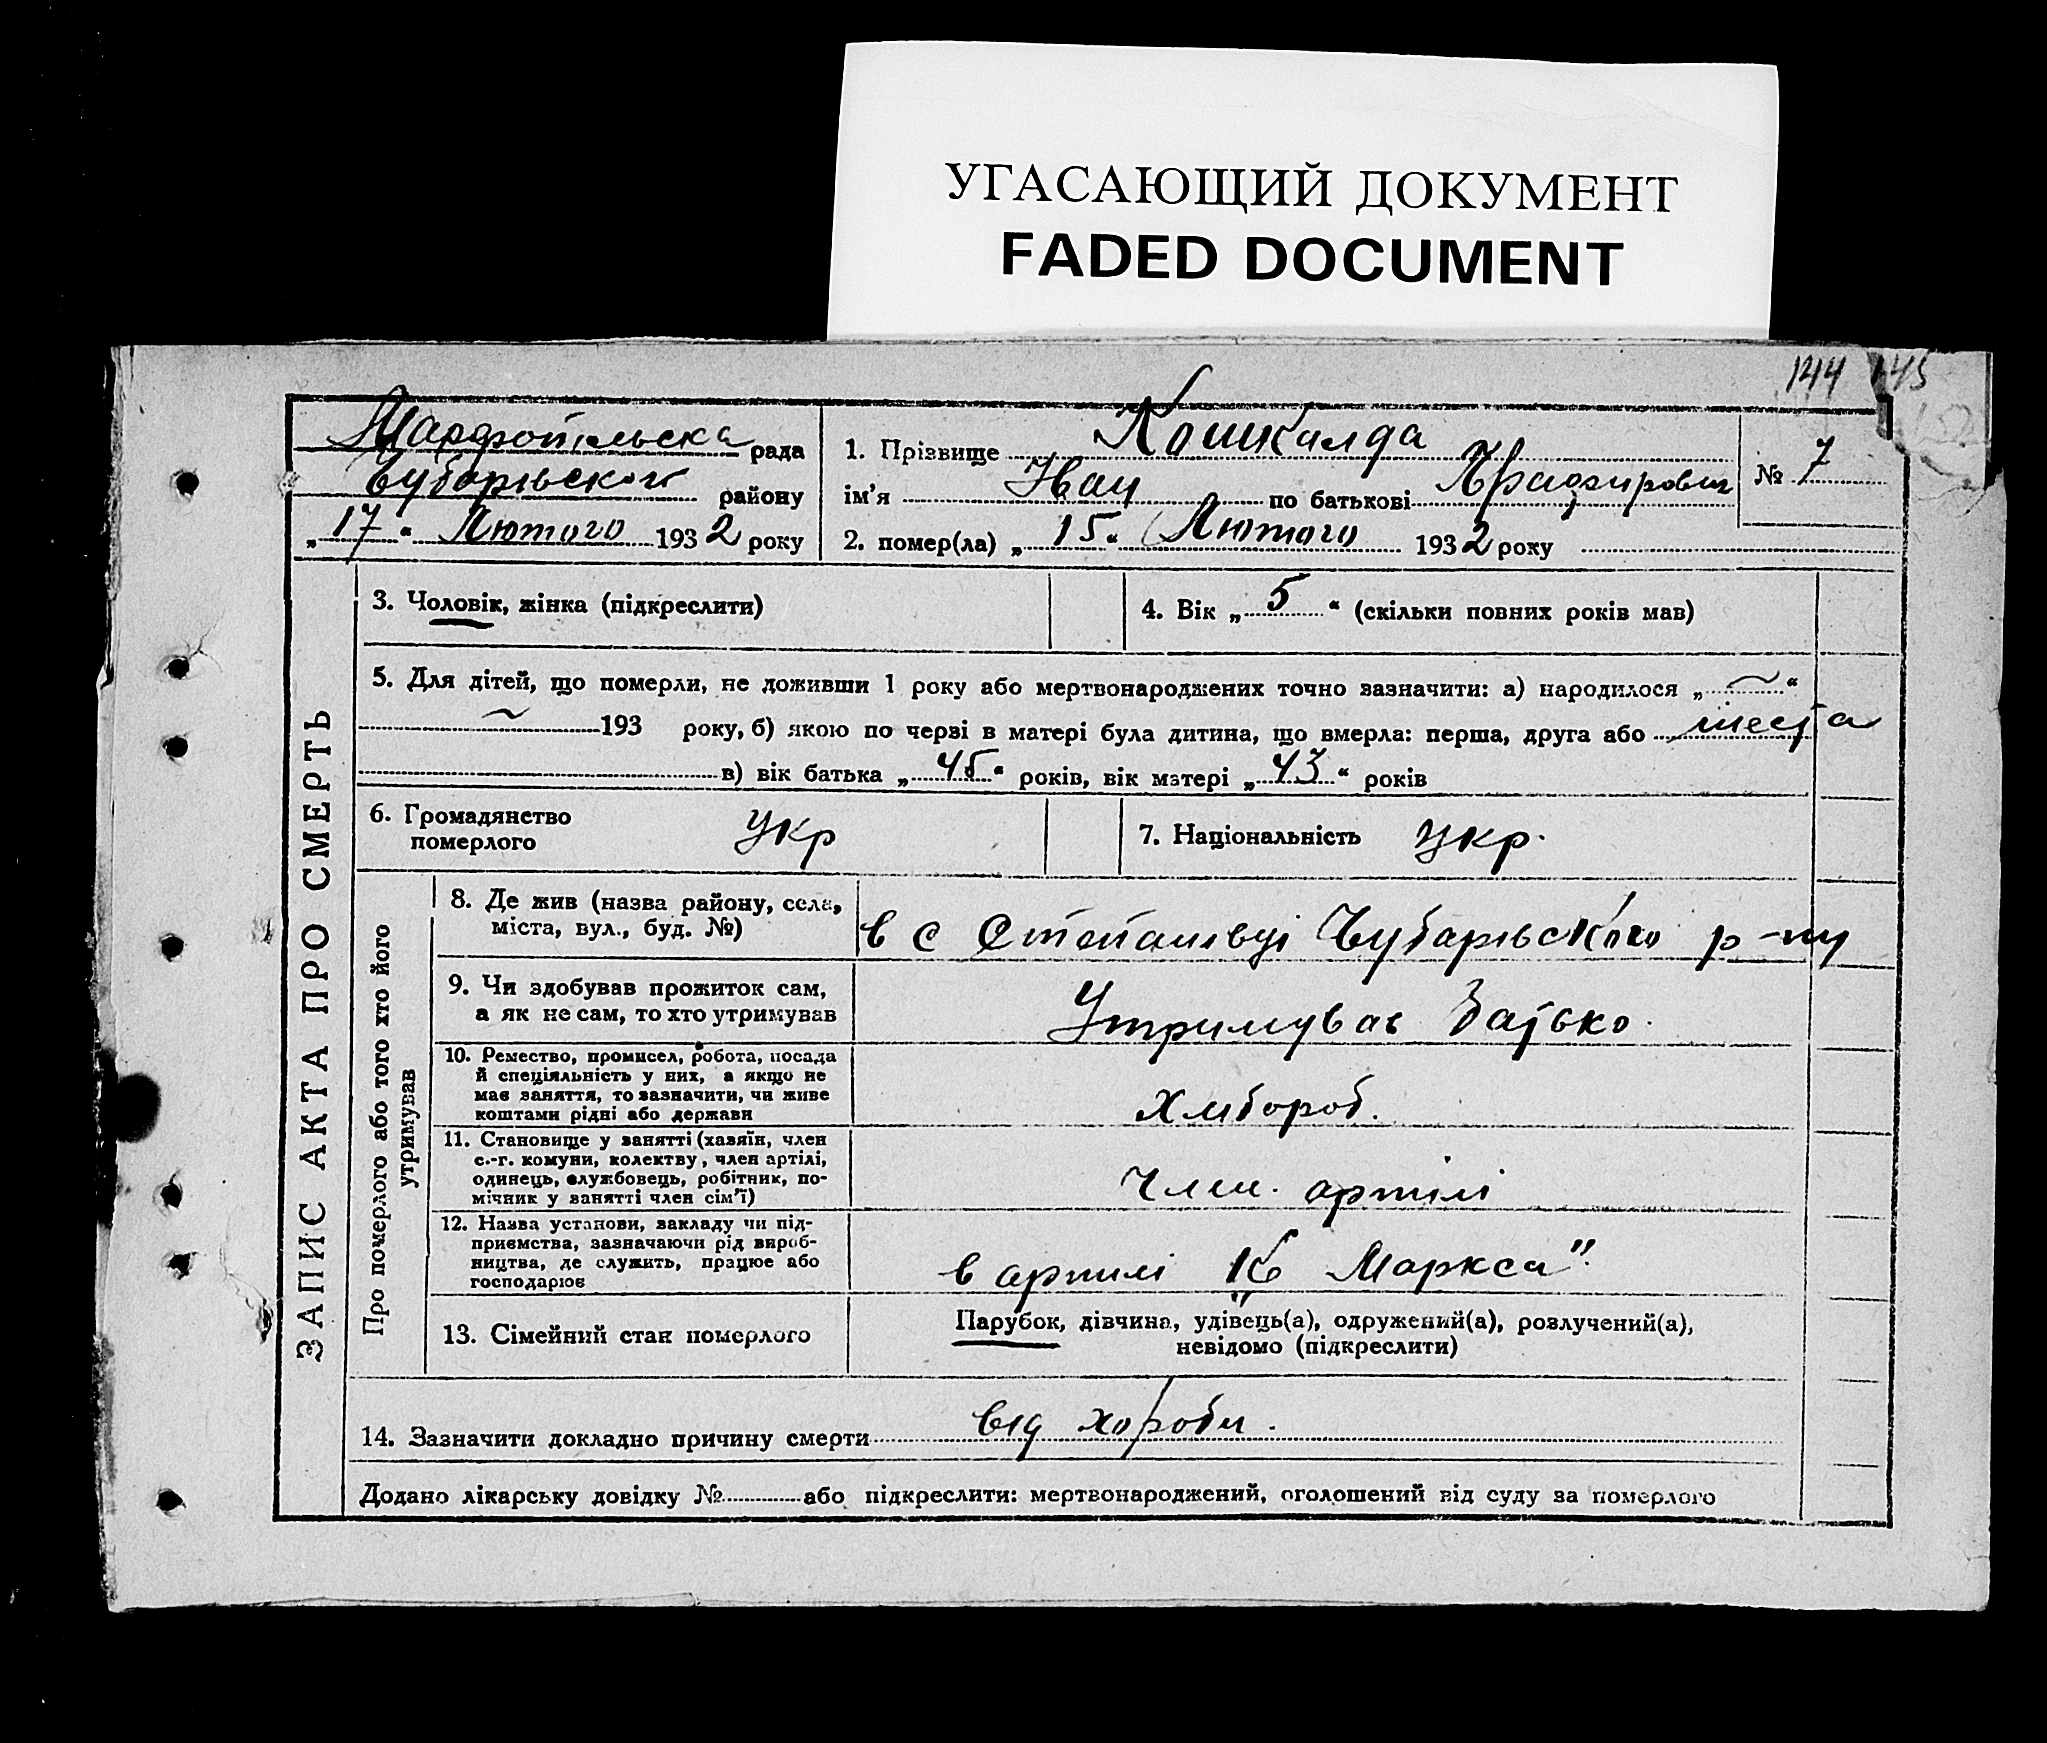 УГАСАЮЩИЙ ДОКУМЕНТ
FADED DOCUMENT
144 145
Марфопільська рада
Чубарівського району
„17“ Лютого 1932 року
1. Прізвище Кошкалда
ім’я Іван по батькові
№ 7
2. помер(ла) „15“ Лютого 1932 року
ЗАПИС АКТА ПРО СМЕРТЬ
3. Чоловік, жінка (підкреслити)
4. Вік „5“ (скільки повних років мав)
5. Для дітей, що померли, не доживши 1 року або мертвонароджених точно зазначити: а) народилося „~“
~ 193 року, б) якою по черзі в матері була дитина, що вмерла: перша, друга або шеста
в) вік батька „45“ років, вік матері „43“ років
6. Громадянство
померлого
укр
7. Національність укр.
Про померлого або того хто його
утримував
8. Де жив (назва району, села,
міста, вул., буд. №)
в с Степанівці Чубарівського р-ну
9. Чи здобував прожиток сам,
а як не сам, то хто утримував
Утримував батько.
10. Ремество, промисел, робота, посада
й спеціяльність у них, а якщо не
має заняття, то зазначити, чи живе
коштами рідні або держави
хлібороб.
11. Становище у занятті (хазяїн, член
с.-г. комуни, колектву, член артілі,
одинець, службовець, робітник, по-
мічник у занятті член сім’ї)
член. артілі
12. Назва установи, закладу чи під-
приємства, зазначаючи рід вироб-
ництва, де служить, працює або
господарює
в артилі „К Маркса”.
13. Сімейний стан померлого
Парубок, дівчина, удівець(а), одружений(а), розлучений(а),
невідомо (підкреслити)
14. Зазначити докладно причину смерти від хороби.
Додано лікарську довідку № або підкреслити: мертвонароджений, оголошений від суду за померлого